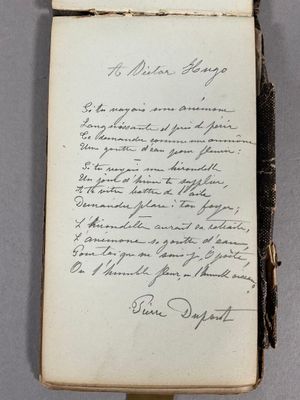 A Victor Hugo
Si tu voyais une anémone
Languissante et près de périr
Te demander comme une aumône
Une goutte d'eau pour fleurir:
Si tu voyais une hirondelle
Un jour d'hiver te supplier
A ta vitre battre de l'aile
Demander place à ton foyer;
L'hirondelle aurait sa retraite,
L'anémone sa goutte d'eau,
Pour toi que ne suis-je, ô poète,
Ou l'humble fleur, ou l'humble oiseau!
Pierre Dupont